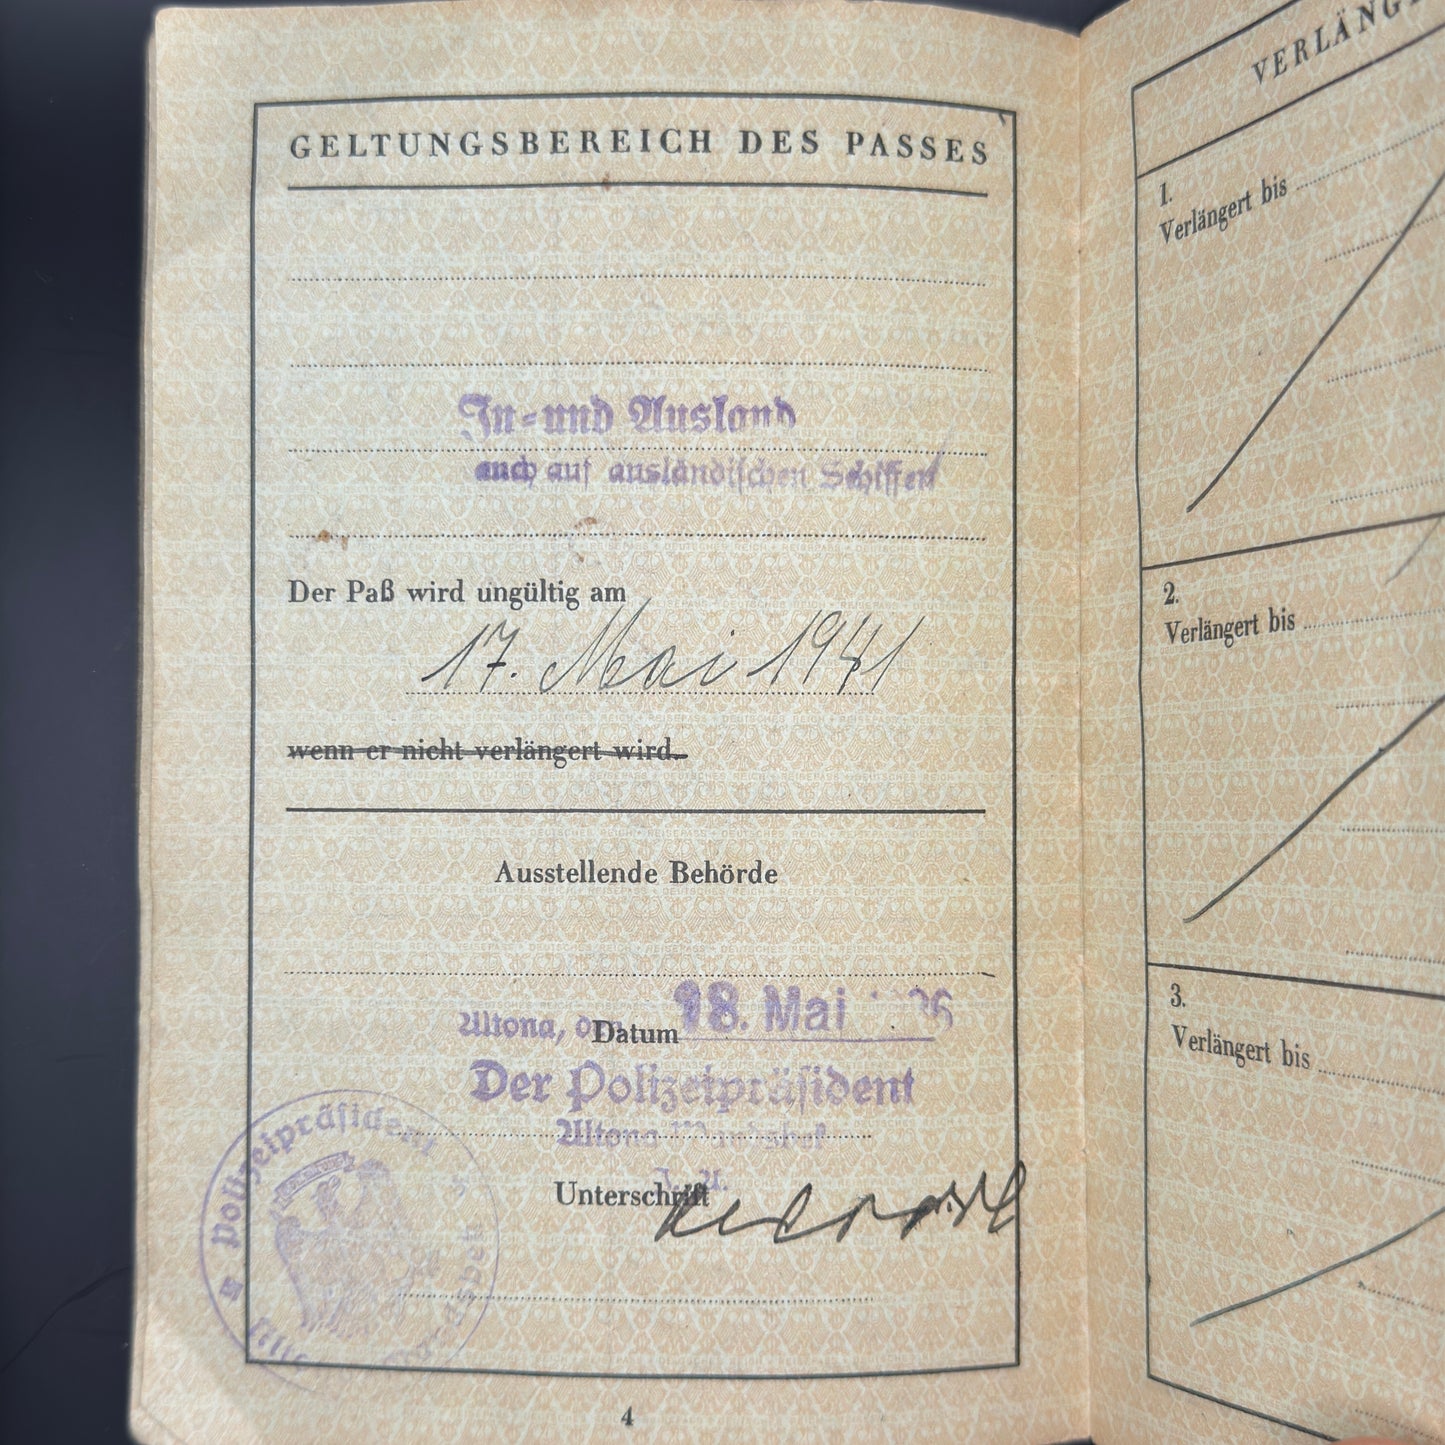 GELTUNGSBEREICH DES PASSES
In- und Ausland
auch auf ausländischen Schiffen
Der Paß wird ungültig am
17. Mai 1941
wenn er nicht verlängert wird.
Ausstellende Behörde
Altona, den
Datum
18. Mai
Der Polizeipräsident
Altona-Wandsbek
Unterschrift
Polizeipräsident
4
VERLÄNG
1.
Verlängert bis
2.
Verlängert bis
3.
Verlängert bis